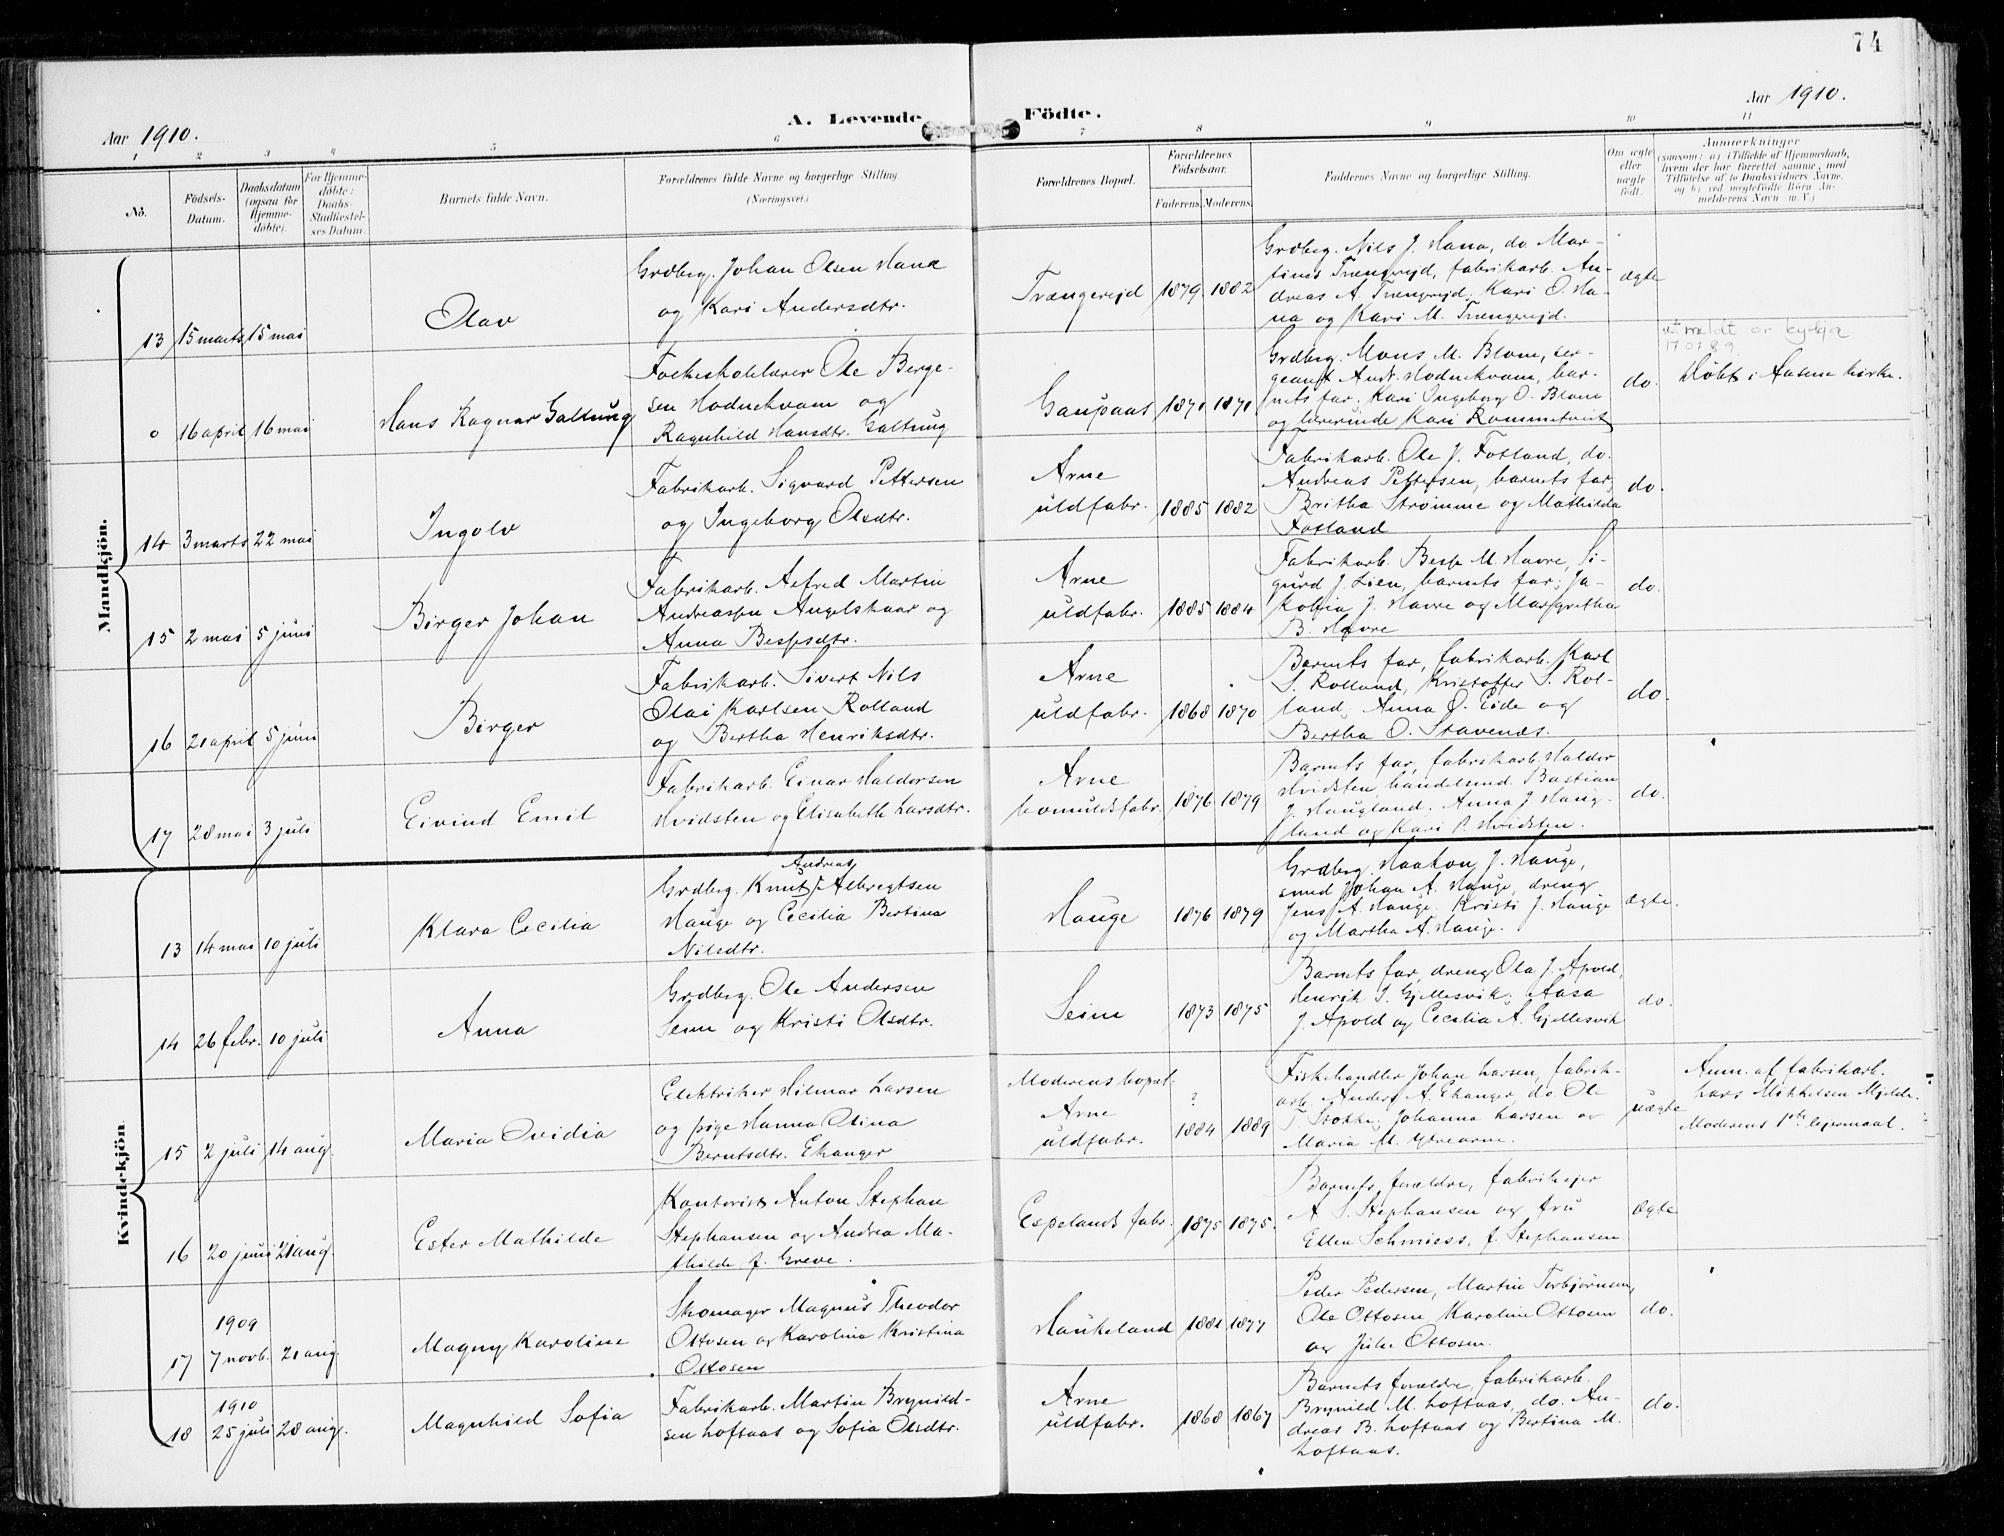 74
Aar 1910.
A. Levende Födte.
Aar 1910.
1 2 3 4 5 6 7 8 9 10 11
No.
Födsels-Datum.
Daabsdatum (ogsaa for Hjemmedöbte).
For Hjemmedöbte: Daabs-Stadfæstelses Datum.
Barnets fulde Navn.
Forældrenes fulde Navne og borgerlige Stilling (Næringsvei.)
Forældrenes Bopæl.
Forældrenes Födselsaar.
Faderens. Moderens.
Faddernes Navne og borgerlige Stilling.
Om ægte eller uægte födt.
Anmærkninger
(saasom: a) i Tilfælde af Hjemmedaab, hvem der har forrettet samme, med Tilföielse af to Daabsvidners Navne, og b) ved uægtefödte Börn Anmelderens Navn m. V.)
Mandkjön.
13 15 marts 15 mai
Olav
Grdbrg. Johan Olsen Hana
og Kari Andersdtr.
Trængereid 1879 1882
Grdbrg. Nils J. Hana, do. Mar-
tinus Trængereid, fabrikarb. An-
dreas A. Trængereid. Kari O. Ha-
na og Kari M. Trængereid.
ægte
0 16 april 16 mai
Hans Ragnar Galtung
Folkeskolelærer Ole Berge-
sen Hodnekvam og
Ragnhild Hansdtr. Galtung
Gaupaas 1871 1871
Grdbrg. Mons M. Blom, ser-
geant Andr. Hodnekvam, bar-
nets far. Kari Ingeborg O. Blom
og lærerinde Kari Rommetveit
do.
utmeldt or kyrkja
17 07 89
Döbt i Aasene kirke.
14 3 marts 22 mai
Ingolv
Fabrikarb. Sigvard Pettersen
og Ingeborg Olsdtr.
Arne
uldfabr. 1885 1882
Fabrikarb. Ole J. Fotland, do.
Andreas Pettersen, barnets far,
Britha Strømme og Mathilda
Fotland
do.
15 2 mai 5 juni
Birger Johan
Fabrikarb. Alfred Martin
Andreassen Angelskaar og
Anna Bespsdtr.
Arne
uldfabr. 1885 1884
Fabrikarb. Besse M. Havre, Si-
gurd J. Lien, barnets far; Ja-
kobia J. Havre og Margretha
B. Havre
do.
16 21 april 5 juni
Birger
Fabrikarb. Sivert Nils
Olai Karlsen Rolland
og Bertha Henriksdtr.
Arne
uldfabr. 1868 1870
Barnets far, fabrikarb. Karl
S. Rolland, Kristoffer S. Rol-
land; Anna O. Eide og
Bertha O. Stavenæs.
do.
17 28 mai 3 juli
Eivind Emil
Fabrikarb. Einar Haldorsen
Hvidsten og Elisabeth Larsdtr.
Arne
bomuldsfabr. 1876 1879
Barnets far, fabrikarb. Haldor
Hvidsten, handelsmd. Bastian
J. Haugland. Anna J. Haug-
land og Kari P. Hvidsten.
do.
Kvindekjön.
13 14 mai 10 juli
Klara Cecilia
Andreas
Grdbrg. Knut Albregtsen
Hauge og Cecilia Bertina
Nilsdtr.
Hauge 1876 1879
Grdbrg. Haakon J. Hauge,
smed Johan A. Hauge, dreng
Jens A. Hauge. Kristi J. Hauge
og Martha A. Hauge.
ægte.
14 26 febr. 10 juli
Anna
Grdbrg. Ole Andersen
Seim og Kristi Olsdtr.
Seim 1873 1875
Barnets far, dreng Ola J. Apold,
Henrik S. Gjellesvik; Aasa
J. Apold og Cecilia A. Gjellesvik
do.
15 2 juli 14 aug.
Maria Ovidia
Elektriker Hilmar Larsen
og pige Hanna Olina
Berntsdtr. Ekanger
Moderens bopæl:
Arne
uldfabr. ? 1884 1889
Fiskehandler Johan Larsen, fabrik-
arb. Anders A. Ekanger, do. Ole
T. Stokke; Johanna Larsen og
Maria M. Ytrearne.
uægte
Anm. af fabrikarb.
Lars Mikkelsen Mjelde.
Moderens 1ste leiermaal.
16 20 juni 21 aug.
Ester Mathilde
Kontorist Anton Stephan
Stephansen og Andrea Ma-
thilde f. Greve.
Espelands fabr. 1875 1875.
Barnets forældre, fabrikejer
A. S. Stephansen og fru
Ellen Schmiess, f. Stephansen
ægte
17 1909
7 novb. 21 aug.
Magny Karoline
Skomager Magnus Theodor
Ottosen og Karolina Kristina
Ottosen
Haukeland 1881 1877
Peder Pedersen, Martin Torbjörnsen,
Ole Ottosen, Karoline Ottosen
og Julie Ottosen.
do.
18 1910
25 juli 28 aug.
Magnhild Sofia
Fabrikarb. Martin Brynild-
sen Loftaas og Sofia Olsdtr.
Arne
uldfabr. 1868 1867
Barnets forældre, fabrikarb.
Brynild M. Loftaas, do. An-
dreas B. Loftaas og Bertina M.
Loftaas.
do.